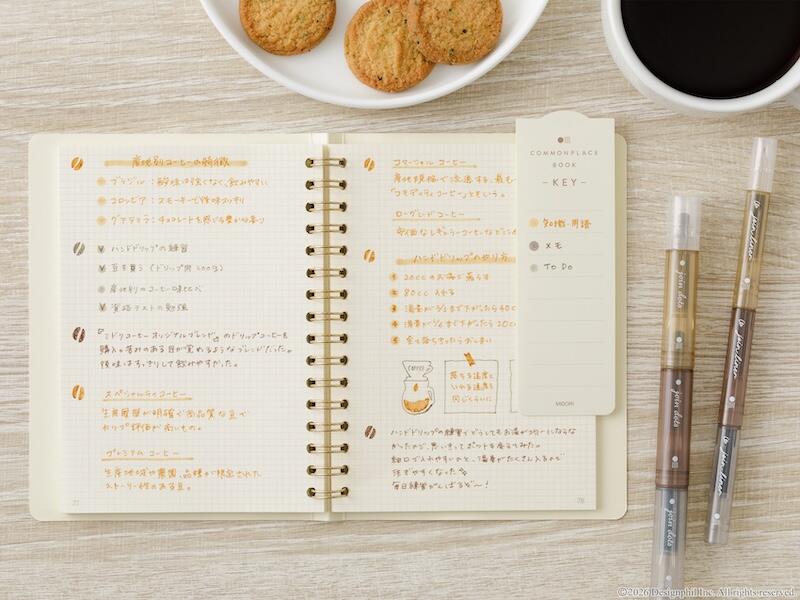 産地別コーヒーの特徴
ブラジル：酸味は強くなく、飲みやすい
コロンビア：スモーキーで後味スッキリ
グアテマラ：チョコレートを感じる豊かな香り
ハンドドリップの練習
豆を買う（ドリップ用200g）
産地別のコーヒー味比べ
資格テストの勉強
『ミドリコーヒーオリジナルブレンド』のドリップコーヒーを
購入。苦みのある目が覚めるようなブレンドだった。
後味はすっきりして飲みやすかった。
スペシャルティコーヒー
生産履歴が明確で高品質な豆で
カップ評価が高いもの。
プレミアムコーヒー
生産地域や農園、品種が限定された
ストーリー性のある豆。
77
コマーシャルコーヒー
産地規格で流通する、最も
「コモディティコーヒー」ともいう。
ローグレードコーヒー
安価なレギュラーコーヒーなどに
ハンドドリップのやり方
20ccのお湯で蒸らす
80cc 入れる
湯量が
湯量が
全て落ちきったらおしまい
COFFEE
落ちる速度と
いれる速度を
同じくらいに
ハンドドリップの練習でどうしてもお湯がスローにならな
かったので、思いきってポットを変えてみた。
細口で入れやすいのと、湯量がたくさん入るので
注ぎやすくなった
毎日練習がんばるぞ〜！
78
COMMONPLACE
BOOK
– KEY –
知識・用語
メモ
TO DO
MIDORI
join dots
join dots
join dots
to join liner
to join liner
to join liner
©2026 Designphil Inc. All rights reserved.